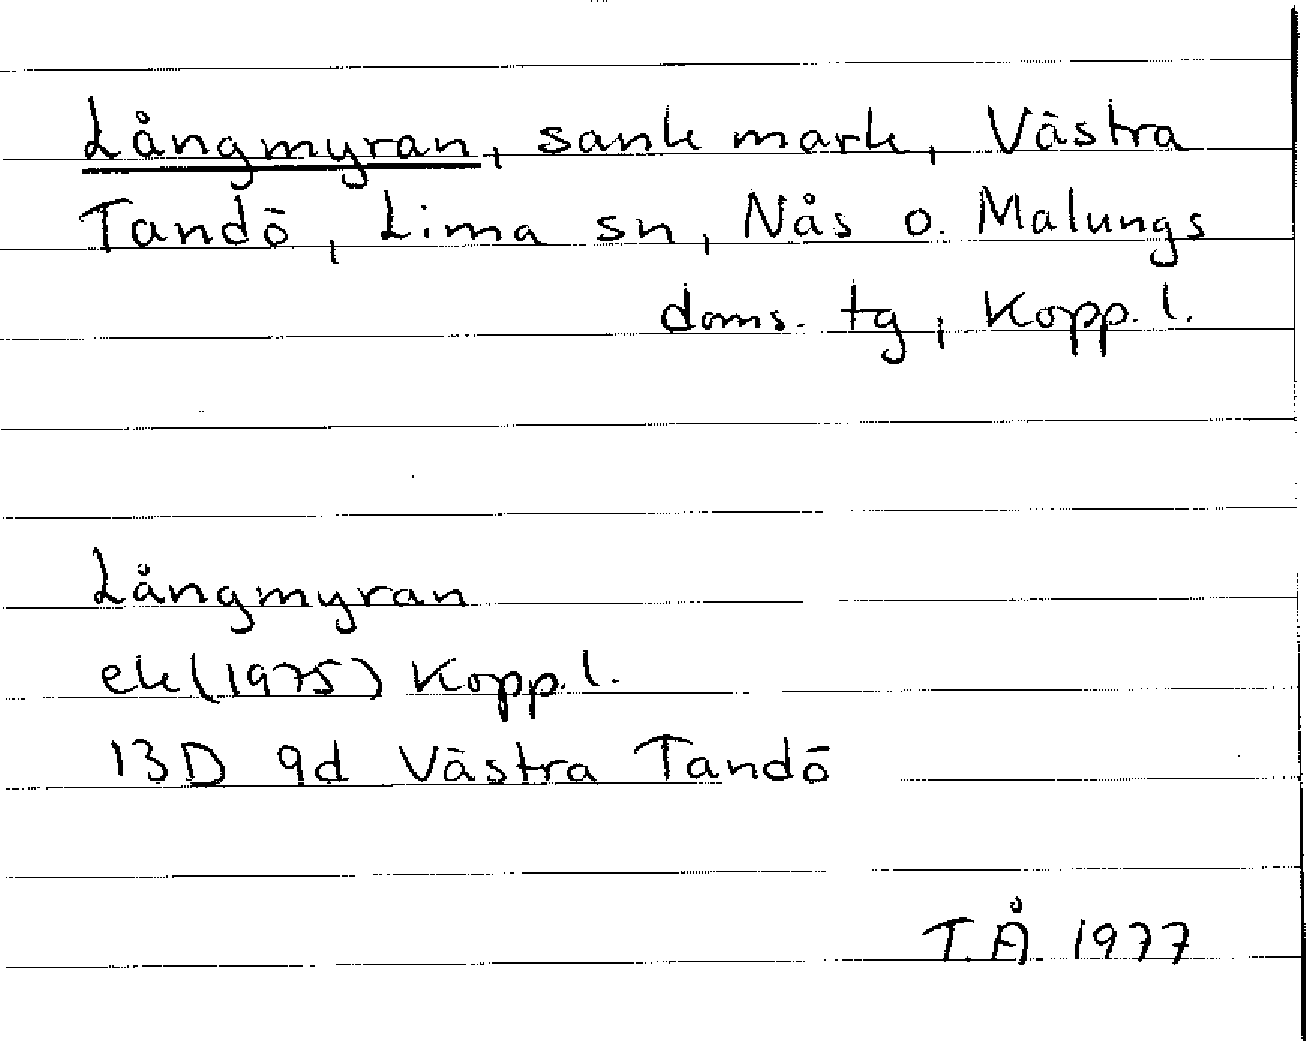 Långmyran, sank mark, Västra
Tandö, Lima sn, Nås o. Malungs
doms. tg, Kopp. l.
Långmyran
ek (1975) Kopp. l.
13D 9d Västra Tandö
T.Å. 1977